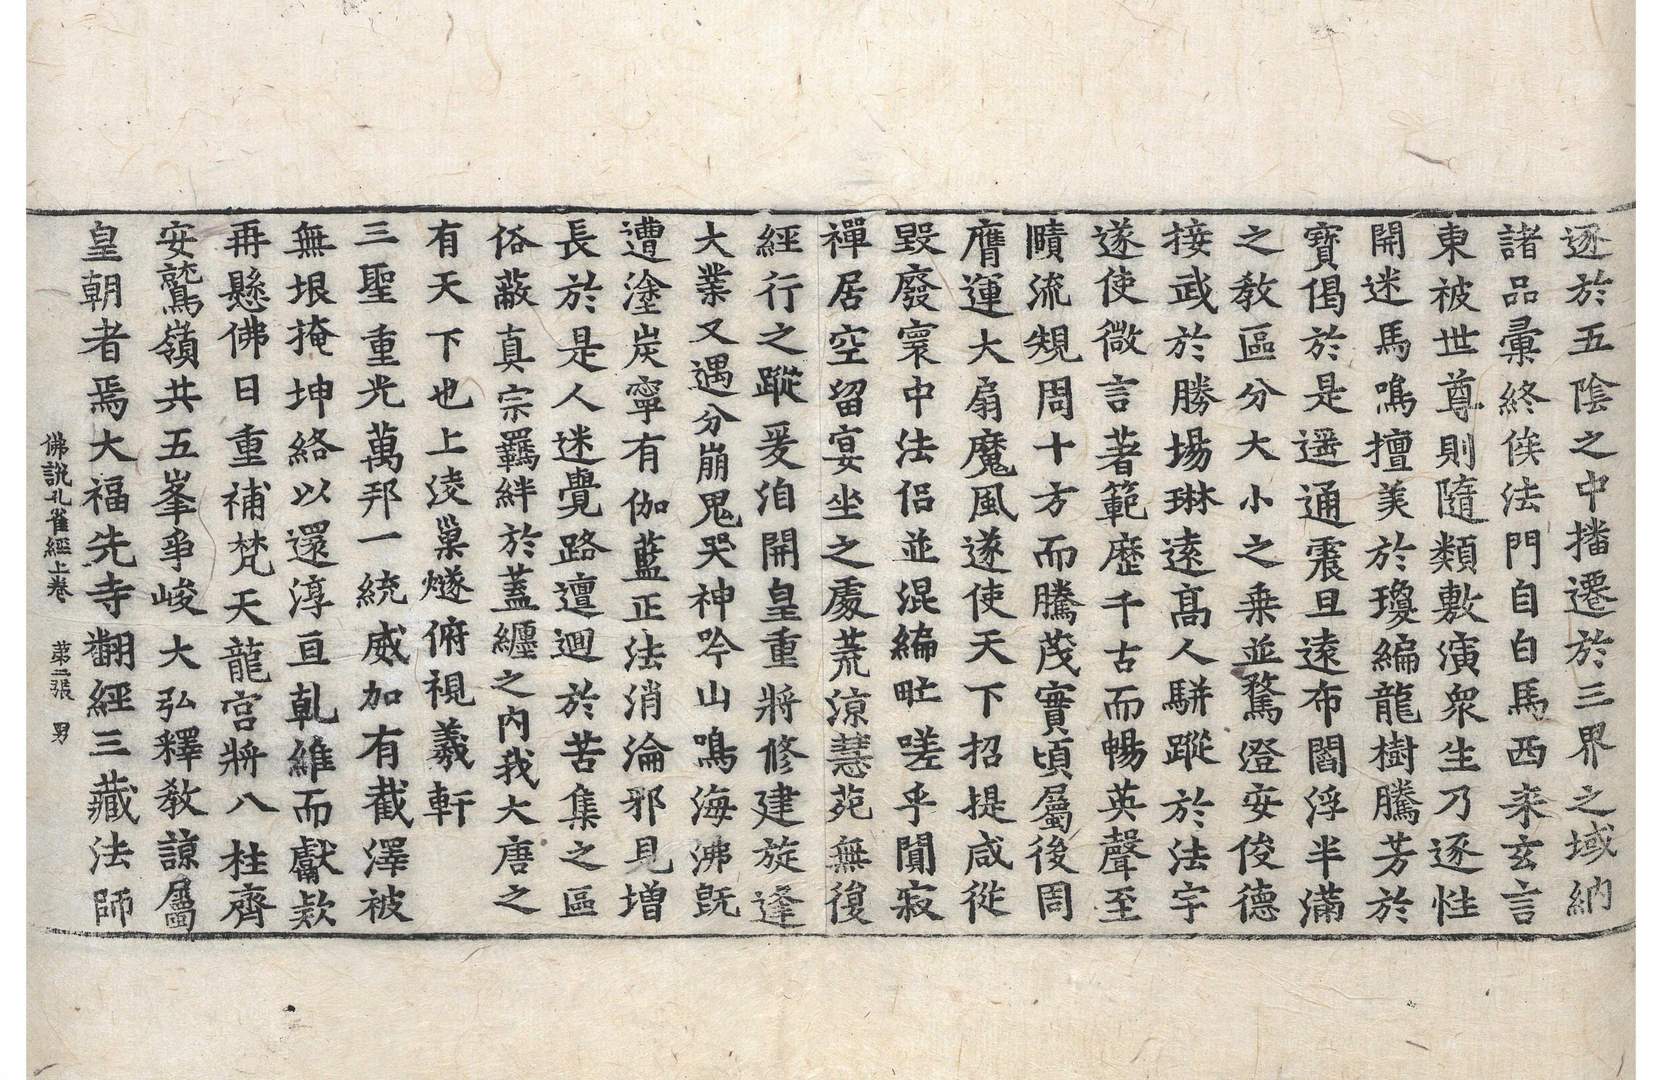 逐於五陰之中播遷於三界之域納
諸品彙終俟法門自白馬西来玄言
東被世尊則隨類敷演衆生乃逐性
開迷馬鳴擅美於瓊編龍樹騰芳於
寶偈於是遥通震旦遠布閻浮半滿
之教區分大小之乗並騖澄安俊德
接武於勝場琳遠髙人駢蹤於法宇
遂使微言著範歷千古而暢英聲至
賾流規周十方而騰茂實頃屬後周
膺運大扇魔風遂使天下招提咸從
毀廢寰中法侣並混編甿嗟乎閴寂
禪居空留宴坐之處荒涼慧苑無復
經行之蹤爰洎開皇重將修建旋逢
大業又遇分崩鬼哭神吟山鳴海沸旣
遭塗炭寧有伽藍正法消淪邪見增
長於是人迷覺路邅迴於苦集之區
俗蔽真宗羈絆於蓋纏之内我大唐之
有天下也上淩巢燧俯視羲軒
三聖重光萬邦一統威加有截澤被
無垠掩坤絡以還淳亘乹維而獻欵
再懸佛日重補梵天龍宮將八柱齊
安鷲嶺共五峯争峻大弘釋教諒屬
皇朝者焉大福先寺翻經三藏法師
佛說孔雀經上卷 苐二張 男